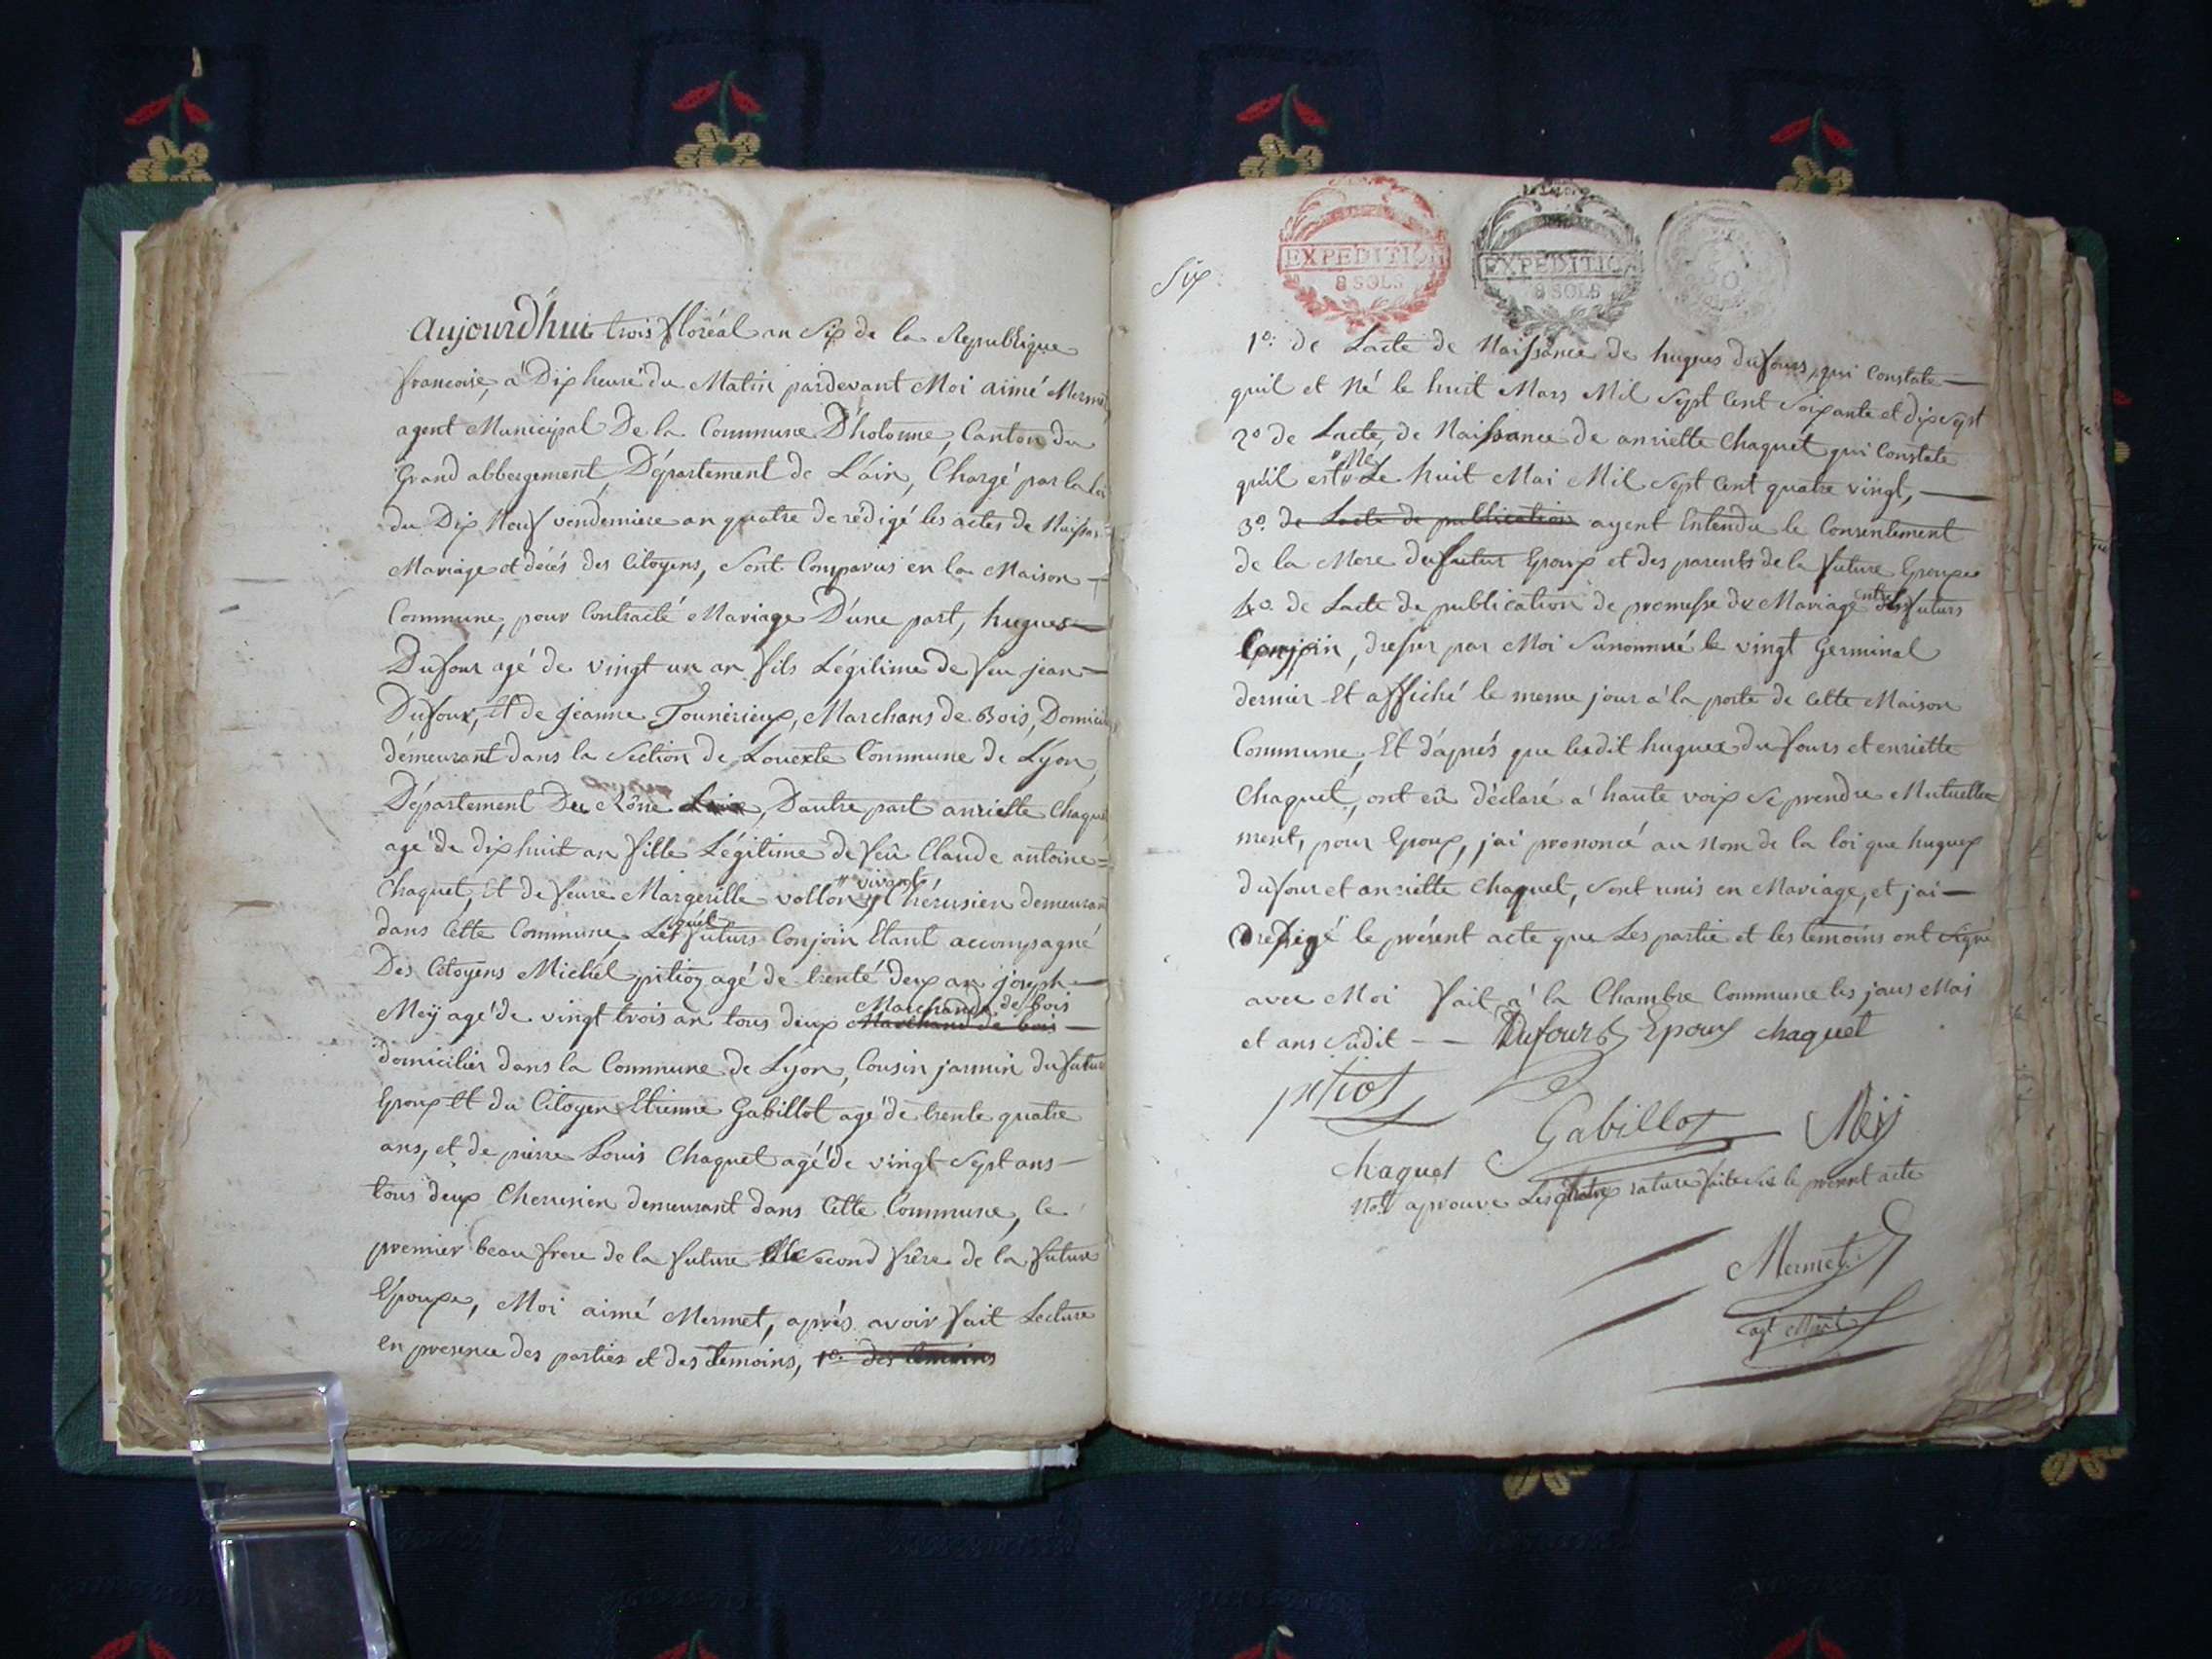 Aujourd'hui trois floréal an Six de la Republique
francoise, a Dix heure du Matin pardevant Moi aimé Mermet
agent Municipal De la Commune D'hotonne, Canton du
Grand abbergement, Département de L'ain, Chargé par la loi
du Dix Neuf vendemiere an quatre de rédigé les actes de Naissan
Mariage et décés des Citoyens, Sont Comparus en la Maison
Commune, pour Contracté Mariage D'une part, hugues
Dufour agé de vingt un an fils Légitime de feu jean
Dufour, Et de Jeanne Tounérieux, Marchans de Bois, Domicil
démeurant dans la Section de Louexte Commune de Lyon
Département Du Rône, Dautre part anriette Chaque
agé de dix huit an fille Légitime de feû Claude antoine
Chaquet, Et de feure Margerille vollon vivant Chérusien demeuran
dans Cette Commune, Lesquel futurs Conjoin Etant accompagné
Des Citoyens Michel pition agé de trenté deux an joseph
Meÿ agé de vingt trois an tous deux Marchand de bois Marchands de Bois
domicilier dans la Commune de Lyon, Cousin jarmin du futur
Epoux Et du Citoyen Etienne Gabillot agé de trente quatre
ans, et de pierre Louis Chaquet agé de vingt Sept ans
tous deux Cherusien demeurant dans Cette Commune, le
premier beau frere de la future Second frêre de la future
Epouxe, Moi aimé Mermet, aprés avoir fait Lecture
en presence des parties et des temoins, 1º. des temoins
Six
EXPEDITION
8 SOLS
EXPEDITION
8 SOLS
1º: de Lacte de Naissance de hugues dufours, qui Constate
quil et Né le huit Mars Mil Sept Cent Soixante et dix Sept
2º de Lacte de Naissance de anriette Chaquet qui Constate
qu'il est Né Le huit Mai Mil Sept Cent quatre vingt,
3º. de Lacte de publication ayent Entendu le Consentement
de la Mere du futur Epoux et des parents de la future Epouxe
4º. de Lacte de publication de promesse de Mariage entre les futurs
Conjoin, dresser par Moi Sunommé le vingt Germinal
dernier Et affiché le meme jour a la porte de Cette Maison
Commune, Et d'aprés que ledit hugues dufours et enriette
Chaquet, ont eû déclaré a haute voix Se prendre Mutuelle
ment, pour Epoux, j'ai prononcé au Nom de la loi que hugues
dufour et anriette Chaquet, Sont unis en Mariage, et jai
redigé le présent acte que Les partie et les témoins ont Signé
avec Moi fait a la Chambre Commune les jours Mois
et ans Sûdit Dufour Epoux Chaquet
pitiot
Gabillot Meÿ
Chaquet
Nota aprouve Les quatre rature faite Sur le present acte
Mermet
agt Mpal